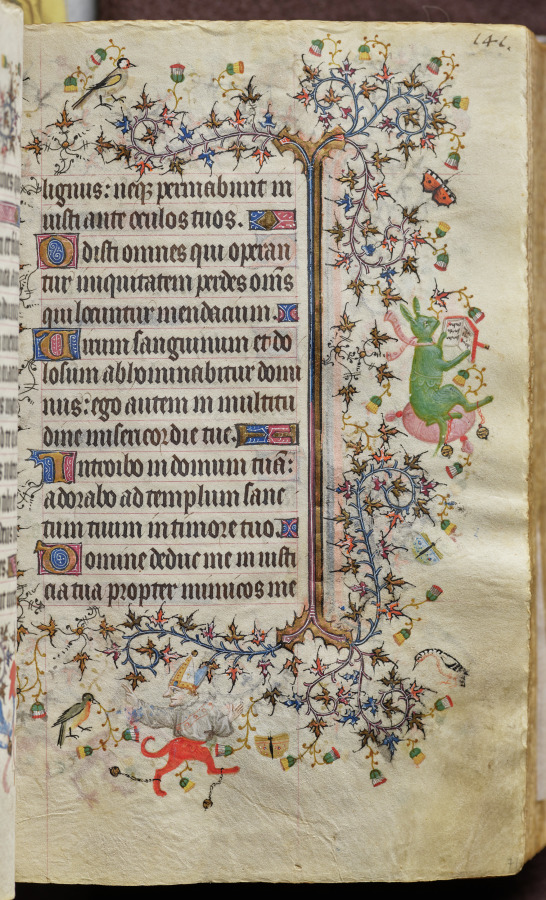 141.
lignus: neqȝ permabunt in
iusti ante oculos tuos.
Odisti omnes qui operan
tur iniquitatem perdes om̄s
qui locuntur mendacium.
Uirum sanguinum et do
losum abhominabitur domi
nus: ego autem in multitu
dine misericordie tue.
Introibo in domum tuā:
adorabo ad templum sanc
tum tuum in timore tuo.
Domine deduc me in iusti
cia tua propter inimicos me